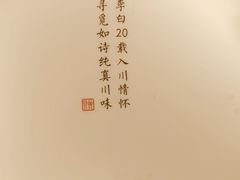 李白20载入川情怀
寻觅如诗纯真川味